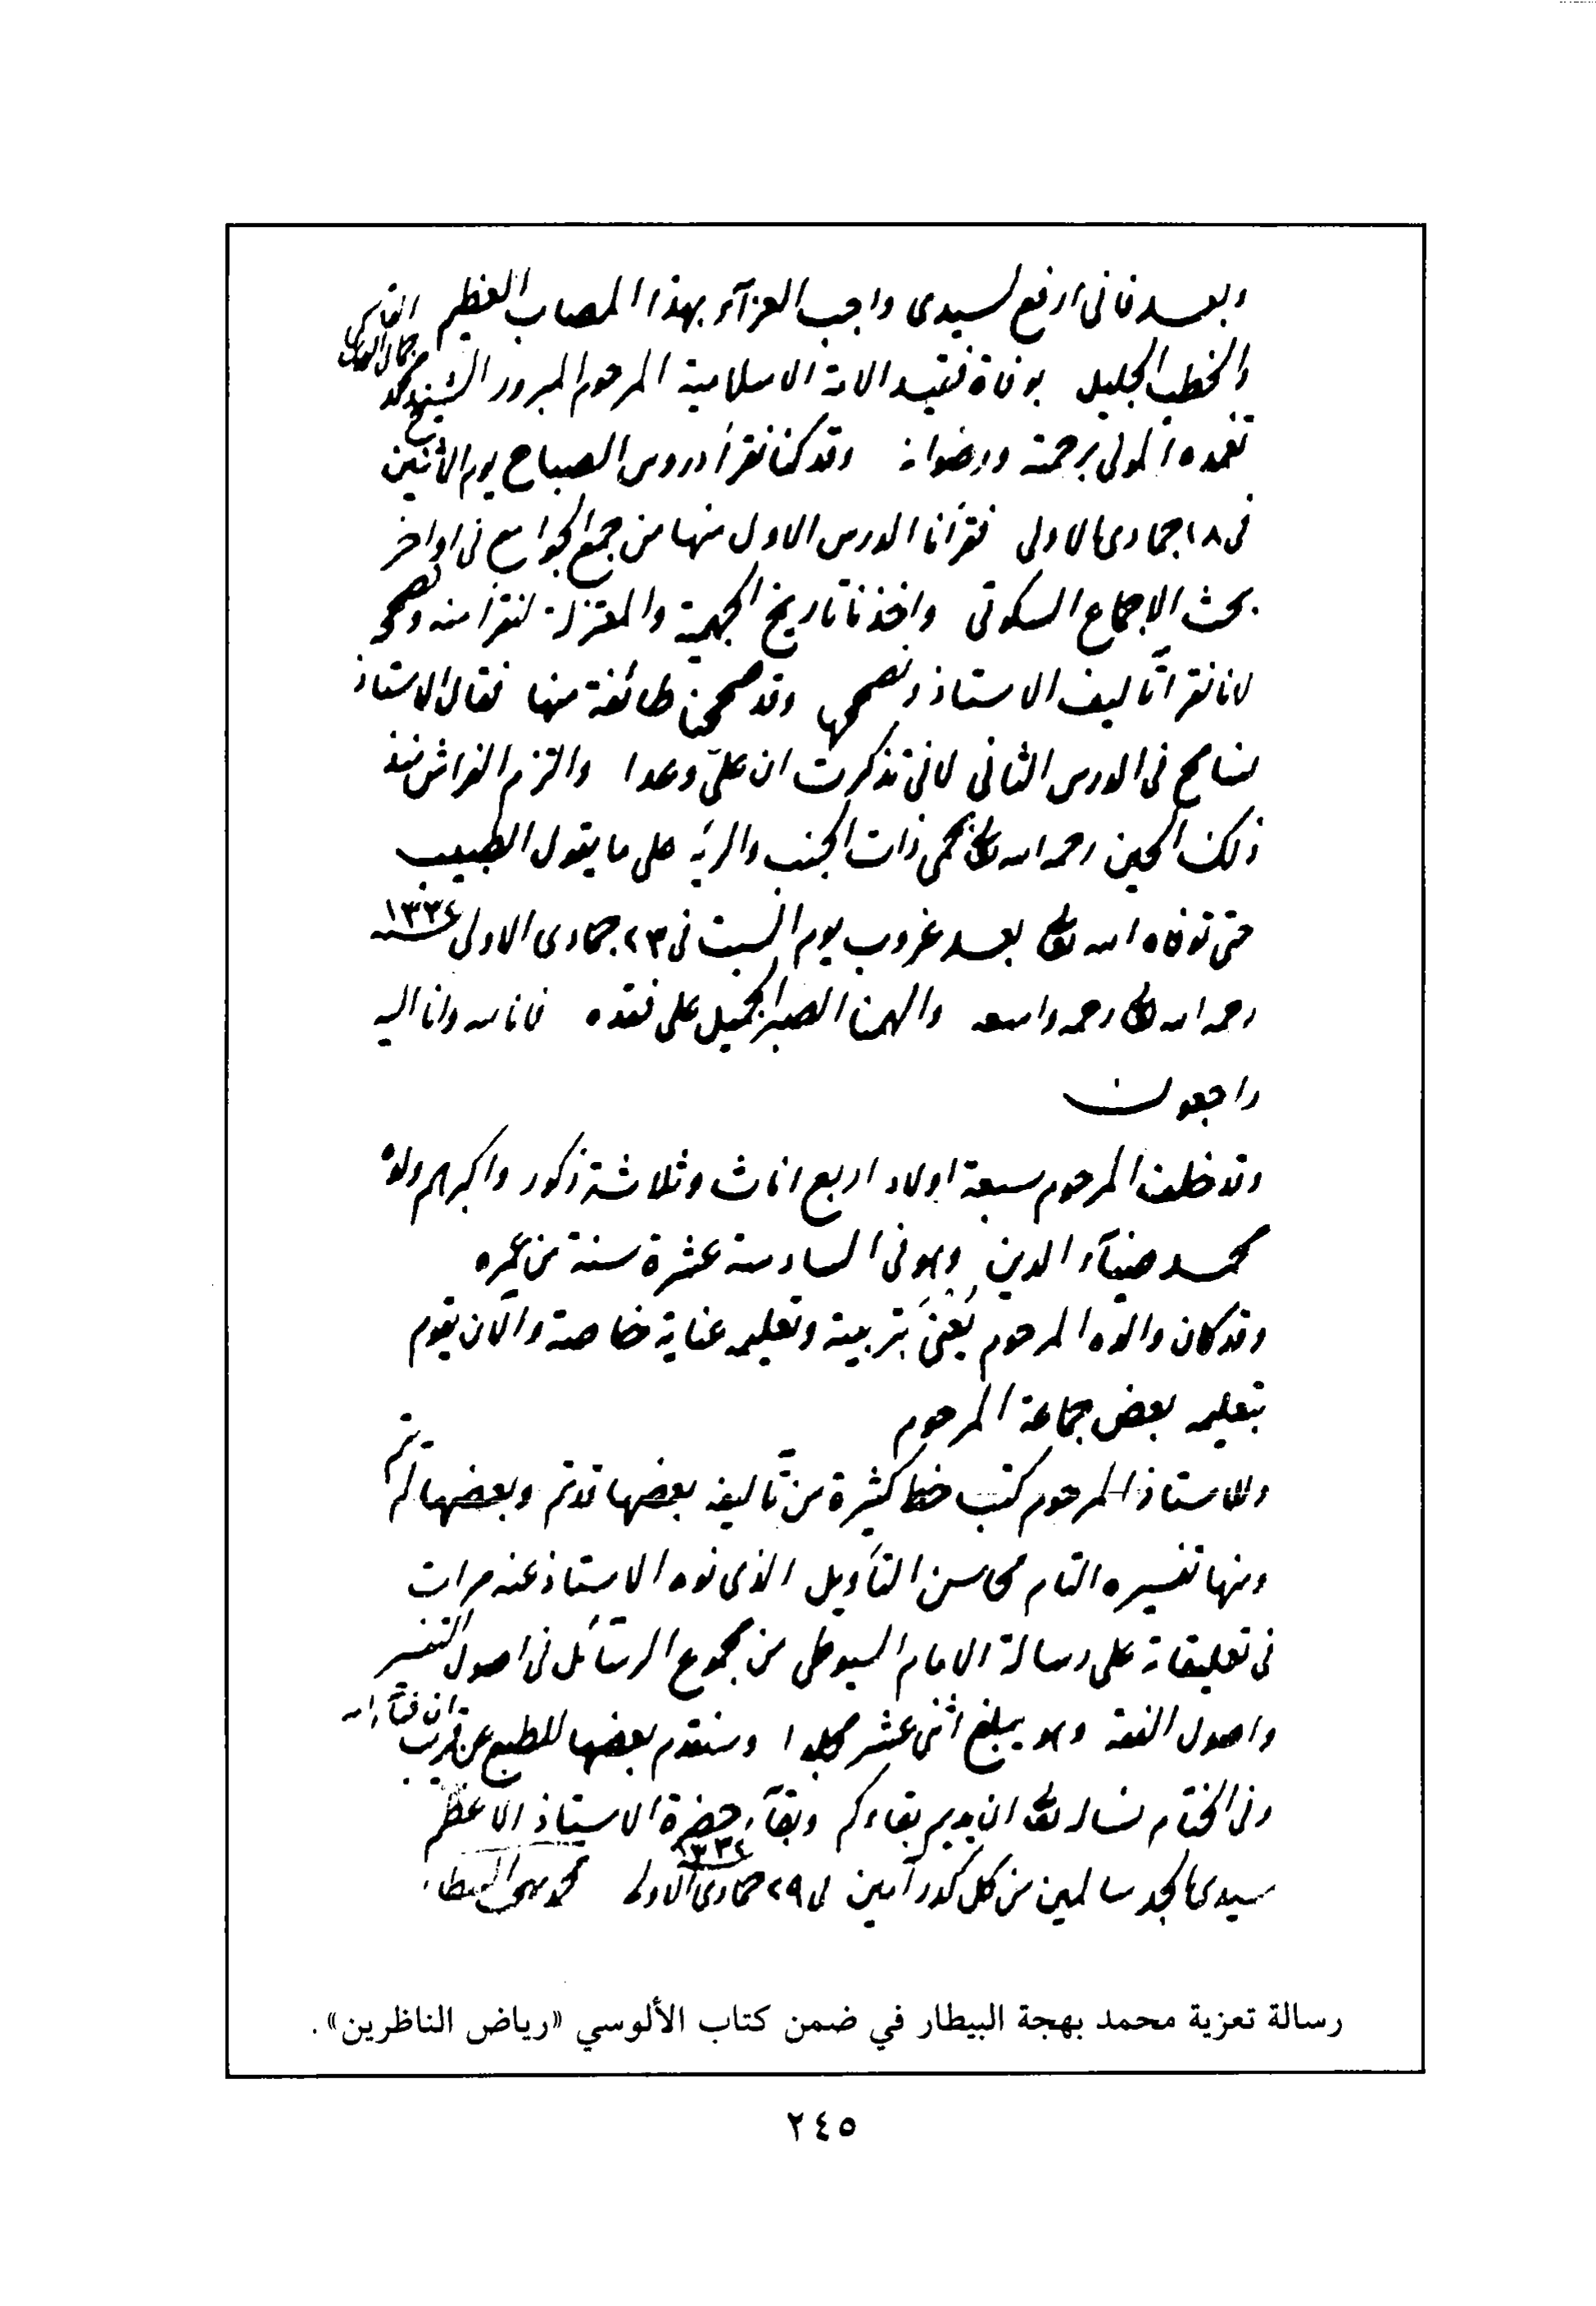 وبعد فاني ارفع لسيدي واجب العزآء بهذا المصاب العظيم
والخطب الجليل بوفاة فقيد الامة الاسلامية المرحوم المبرور الشيخ محمد جمال الدين القاسمي
تغمده المولى برحمته ورضوانه وقد كنا نقرأ دروس الصباح يوم الاثنين
في ١٨ جمادى الاولى فقرأنا الدرس الاول منها من جمع الجوامع في اواخر
بحث الاجماع السكوتي واخذنا تاريخ الجهمية والمعتزلة لنقرأ منه ونصحح
لانا نقرأ تآليف الاستاذ ونصححها وقد صححنا طائفة منها فقال الاستاذ
نسامح في الدرس الثاني لاني تذكرت ان عليّ وعدا والتزم الفراش منذ
ذلك الحين رحمه الله تعالى بحمى ذات الجنب والرئة على ما يقول الطبيب
حتى توفاه الله تعالى بعد غروب يوم السبت في ٢٣ جمادى الاولى ١٣٣٤
رحمه الله تعالى رحمة واسعة والهمنا الصبر الجميل على فقده فانا لله وانا اليه
راجعون
وقد خلف المرحوم سبعة اولاد اربع اناث وثلاثة ذكور واكبرهم ولده
محمد ضيآء الدين وهو في السادسة عشرة سنة من عمره
وقد كان والده المرحوم يُعنىَ بتربيته وتعليمه عناية خاصة والآن يقوم
بتعليمه بعض جماعة المرحوم
وللاستاذ المرحوم كتب خط كثيرة من تآليفه بعضها قد تم وبعضها لم يتم
ومنها تفسيره التام محاسن التأويل الذي نوه الاستاذ عنه مرات
في تعليقاته على رسالة الامام السيوطي من مجموع الرسآئل في اصول التفسير
واصول الفقه وهو يبلغ اثنى عشر مجلدا وسنقدم بعضها للطبع عن قريب ان شآء الله
وفي الختام نساله تعالى ان يديم بقاءكم وبقآء حضرة الاستاذ الاعظم
سيدي المجد سالمين من كل كدر آمين في ٢٩ جمادى الاولى ١٣٣٤ محمد بهجة البيطار
رسالة تعزية محمد بهجة البيطار في ضمن كتاب الألوسي «رياض الناظرين».
٢٤٥